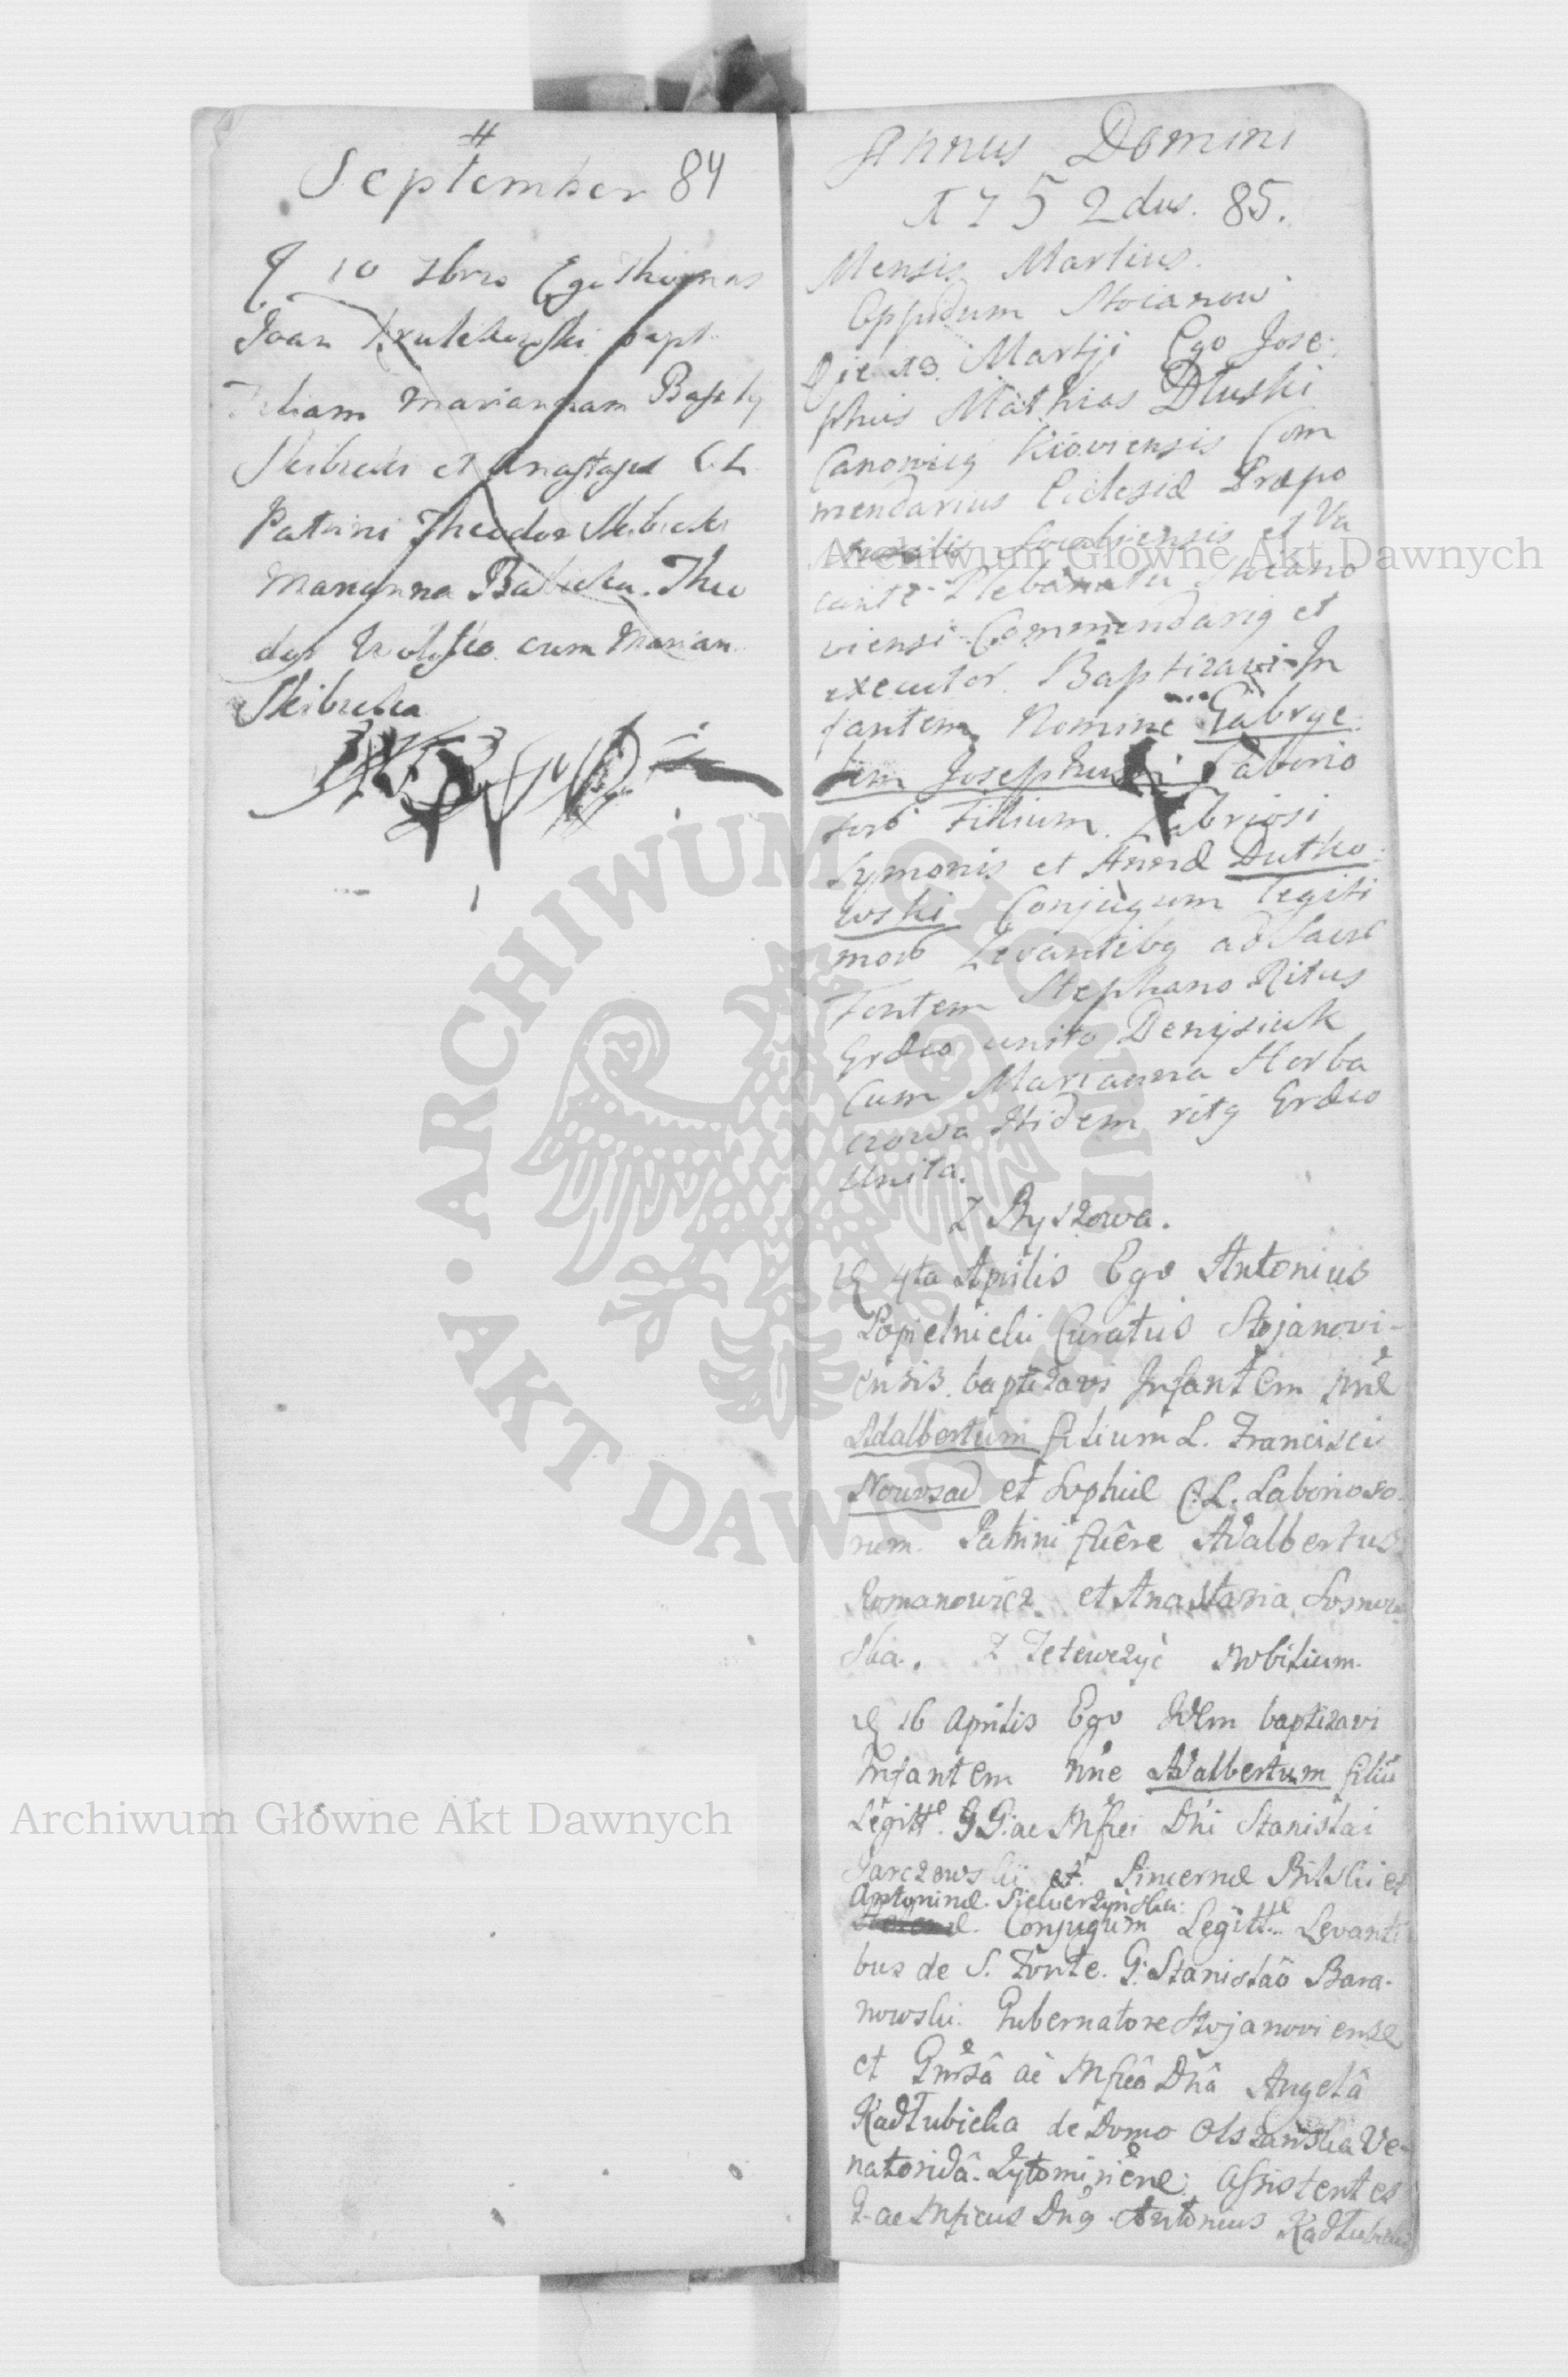 September 84
10 7bris Ego Thomas
Joan
Filiam Mariannam
Skibicki et Anastasiæ C L
Patrini Theodor Skibicki
Marianna Babicka. Theo
dor cum Marian
Skibicka
Annus Domini
1752dus. 85.
Mensis Martius.
Oppidum Stoianow
Die 13 Martji Ego Jose-
phus Mathias Dłuski
Canonicq Kioviensis Com
mendarius Eccłesiæ Præpo
et Va
cante Plebanatu Stoiano
viensi Commendariq et
executor. Baptizavi In
fantem Nomine Gabrye-
lem Josephum Laborio
sorũ Filium. Labriosi
Symonis et Annæ Dutko-
wski Conjugum legiti
morũ Levantibq ad Sacrũ
Fontem Stephano Ritus
Græco unito Denysiuk
Cum Marianna Horba
czowa Itidem ritq Græco
Unita.
Z Byszowa.
4ta Aprilis Ego Antonius
Popielnicki Curatus Stojanovi-
ensis baptizavi Infantem nñe
Adalbertum filium L. Francisci
Nowosad et Sophiæ C.L. Laborioso-
rum. Patrini fuêre Adalbertus
Romanowicz et Anastazia Sosnow
ska. Z Tetewczyć Nobilium.
16 Aprilis Ego Idem baptizavi
Infantem nñe Adalbertum filiũ
Legitt. GG. ac Mfici Dñi Stanislai
Jarczewski et Pincernæ Bilski et
Antoninæ
Conjugum Legitt. Levanti
bus de S. Fonte. G. Stanislaô Bara-
nowski. Gubernatore Stojanoviense
et Gnrsâ ac Mficâ Dñâ Angelâ
Kadłubicka de Domo Olszańska Ve-
natoridâ Assistentes
G. ac Mficus Dñq Antonius Kadłubicki